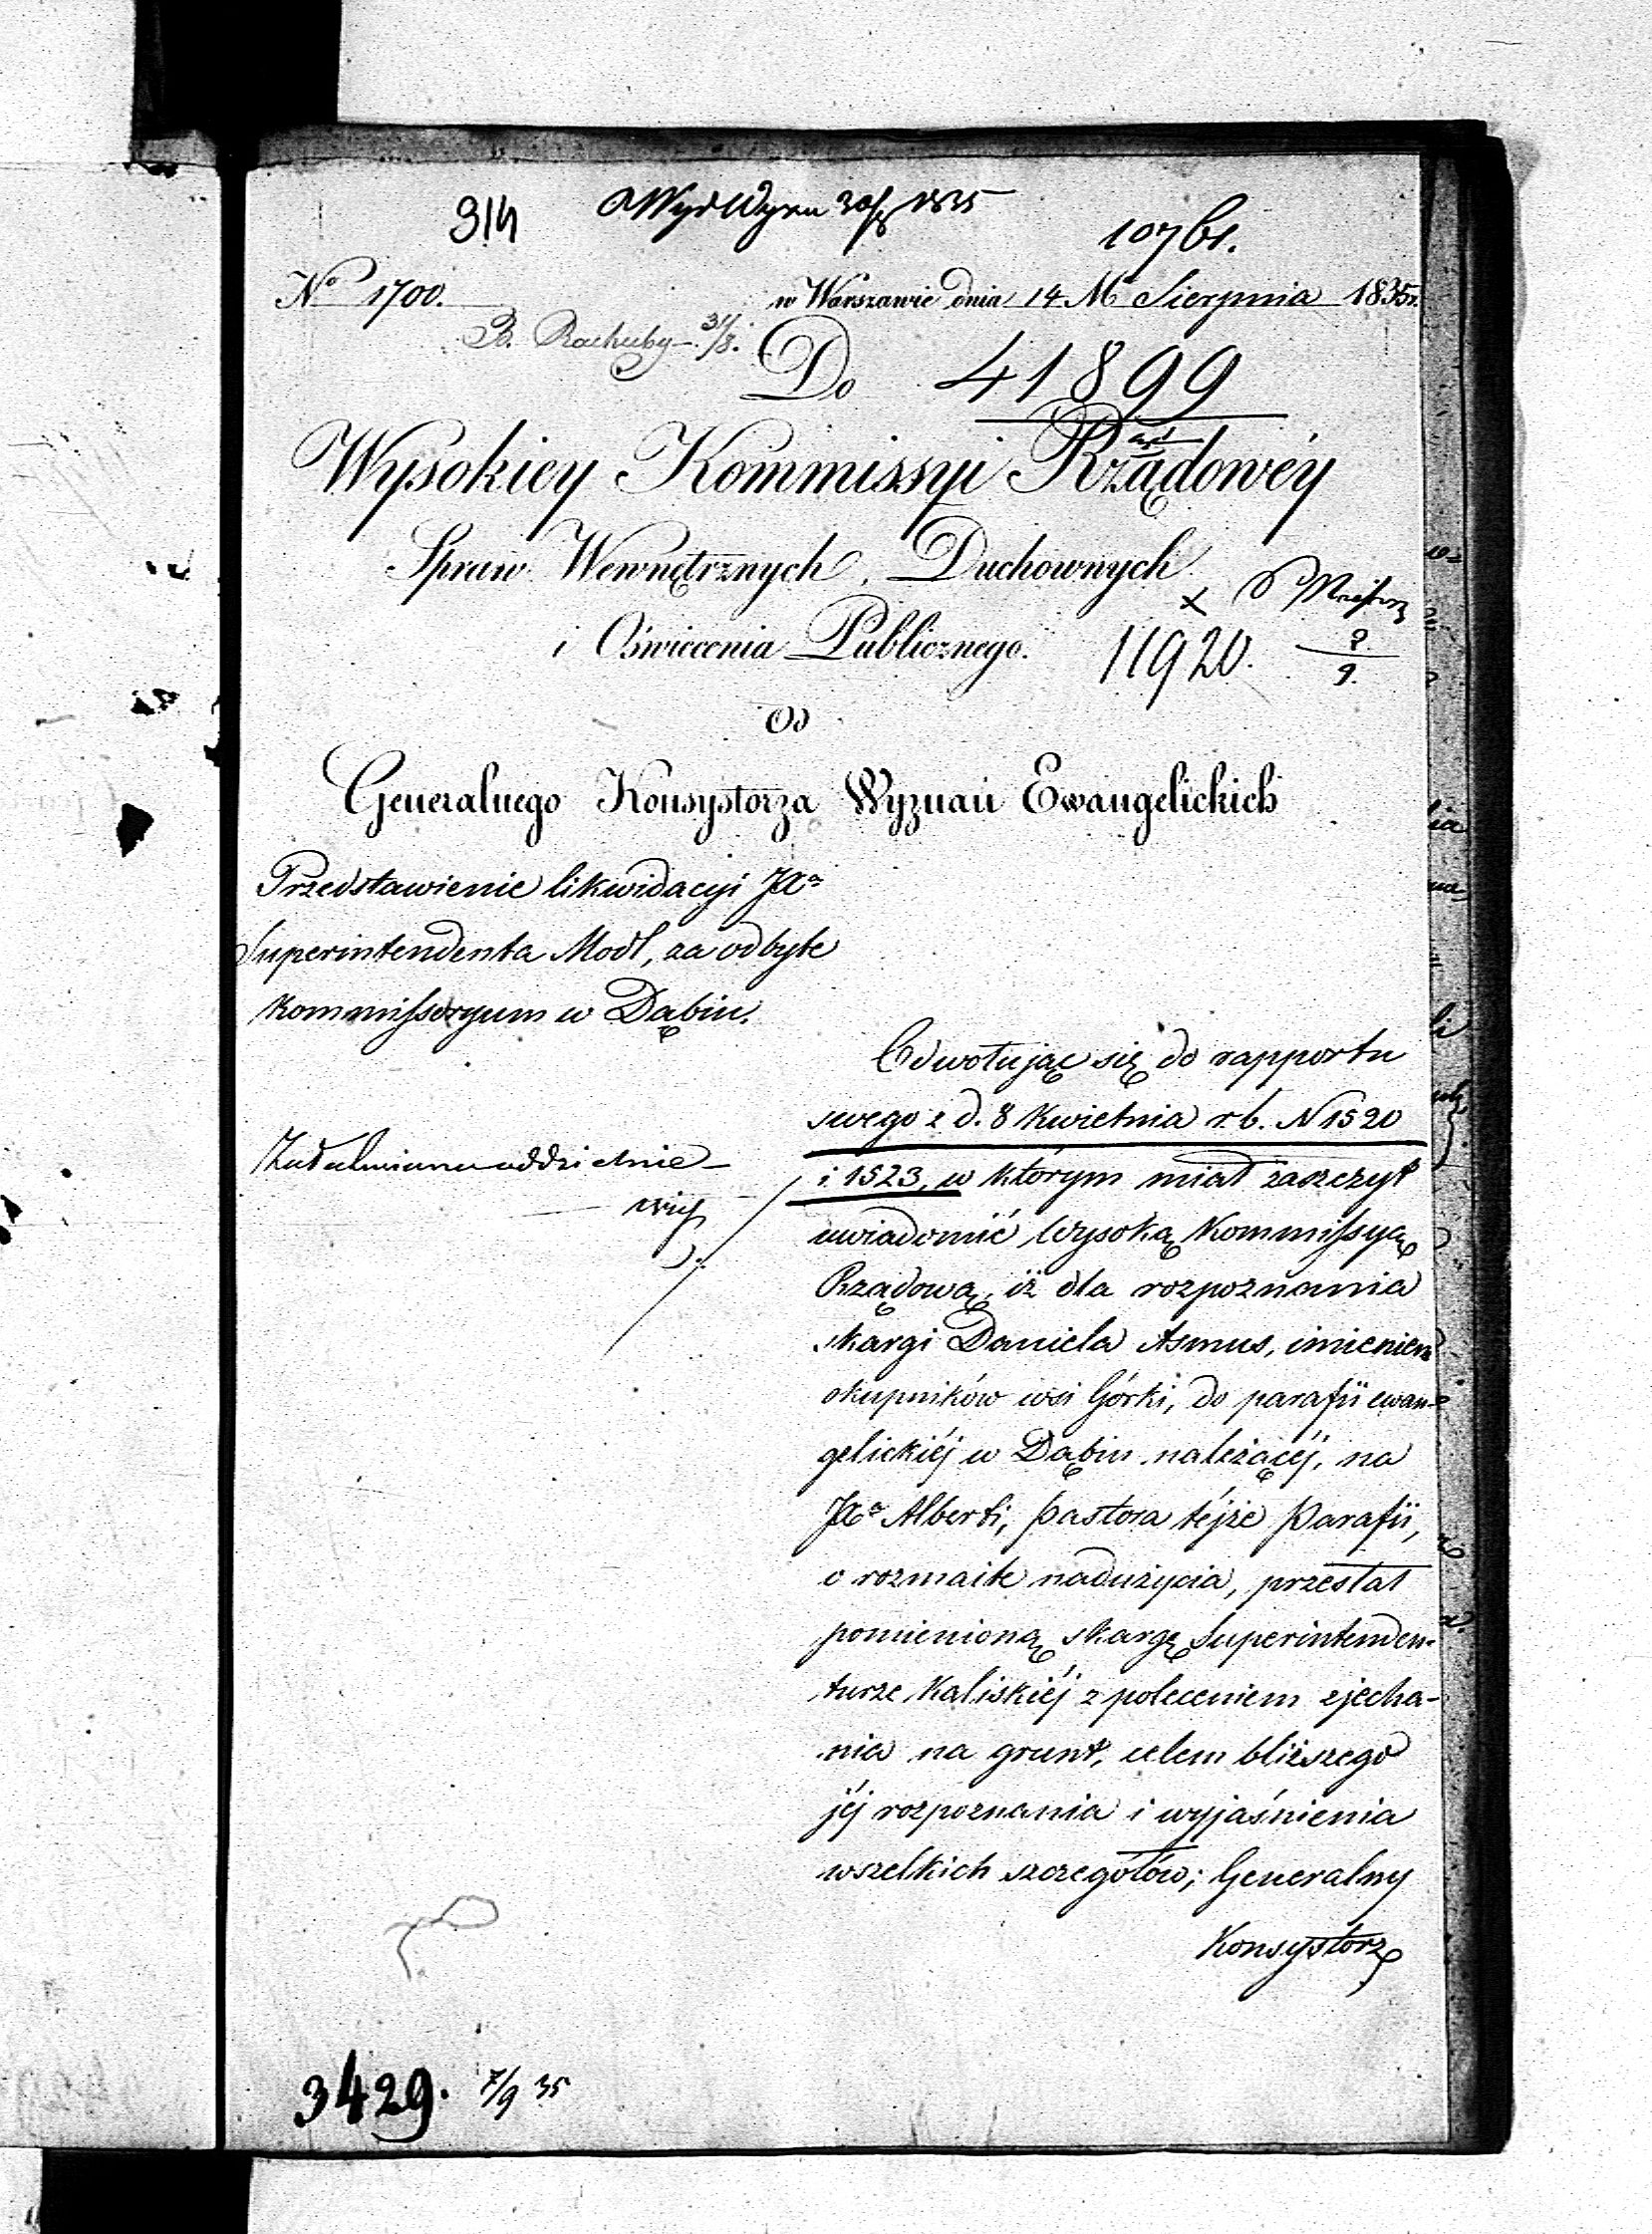 314
30/8 1835
107 bl.
No 1700.
w Warszawie dnia 14 Mca Sierpnia 1835r.
B. Rachuby 31/8.
Do 41899
Wysokiey Kommissyi Rządowéy
Spraw Wewnętrznych, Duchownych
i Oświecenia Publicznego.
11920.
9.
Od
Generalnego Konsystorza Wyznań Ewangelickich
Przedstawienie likwidacyi JXa
Superintendenta Modl, za odbyte
kommissoryum w Dąbiu.
Odwołując się do rapportu
swego z d. 8 Kwietnia r. b. N 1520
i 1523, w którym miał zaszczyt
uwiadomić Wysoką Kommissyą
Rządową, iż dla rozpoznania
skargi Daniela Asmus, imieniem
okupników wsi Górki, do parafii ewan-
gelickiéj w Dąbiu należącéj, na
JXa Alberti, Pastora téjże Parafii,
o rozmaite nadużycia, przesłał
pomienioną skargę Superintenden-
turze Kaliskiéj z poleceniem zjecha-
nia na grunt, celem bliższego
jéj rozpoznania i wyjaśnienia
wszelkich szczegółów; Generalny
Konsystorz
oddzielnie
3429. 7/9 35